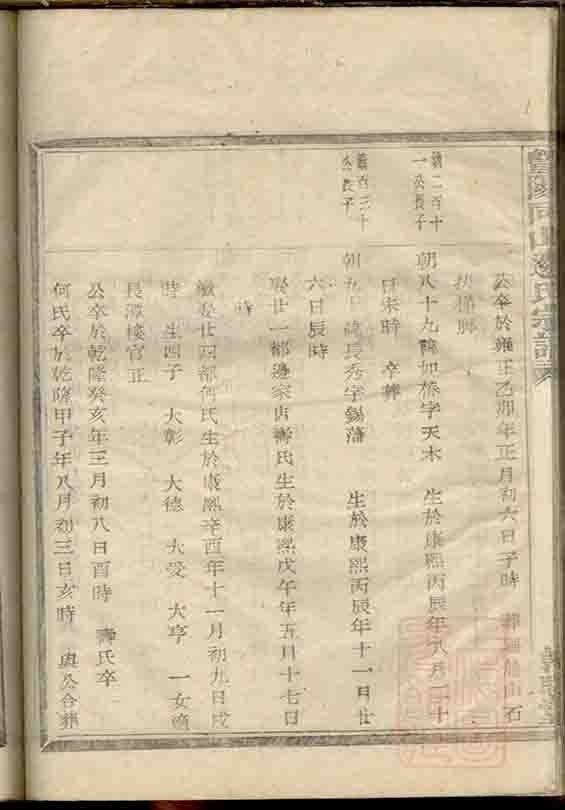 邊氏宗譜
公卒於雍正乙卯年正月初六日子時 石
扶梯脚
鎮二百十一公長子
朝八十九諱如橋字天木 生於康熙丙辰年八月二十
日未時 卒葬
鎮百三十公長子
朝九十諱長秀字錫藩 生於康熙丙辰年十一月廿
六日辰時
娶廿一都邊宗 壽氏生於康熙戊午年五月十七日
時
繼娶廿四都何氏生於康熙辛酉年十一月初九日戌
時 生四子 大彰 大德 大受 大亨 一女適
長潭樓官正
公卒於乾隆癸亥年三月初八日酉時 壽氏卒
何氏卒於乾隆甲子年八月初三日亥時 與公合葬